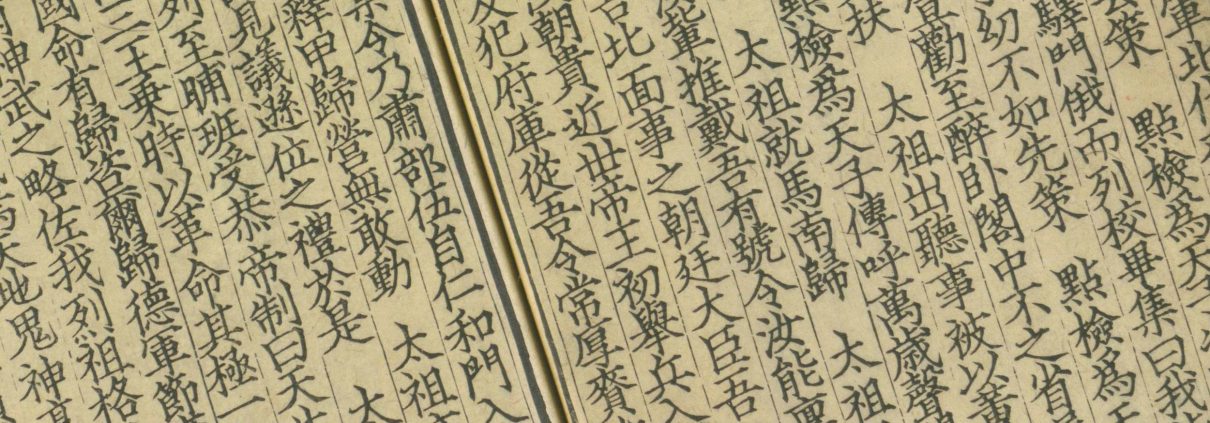 軍北
策　點檢爲天
驛門俄而列校畢集曰我
幼不如先策　點檢爲
宣勸至醉臥閣中不之省
扶　太祖出聽事被以黃
點檢爲天子傳呼萬歲聲
太祖就馬南歸　太祖
軰推戴吾有號令汝能
北面事之朝廷大臣吾
朝貴近世帝王初舉兵入
犯府庫從吾令常厚賚
令乃肅部伍自仁和門入
釋甲歸營無敢動　太祖
見議遜位之禮於是　太
列至晡班受恭帝制曰天
二王乘時以革命其極一
國命有歸咨爾歸德軍節
神武之略佐我列祖格
天地鬼神